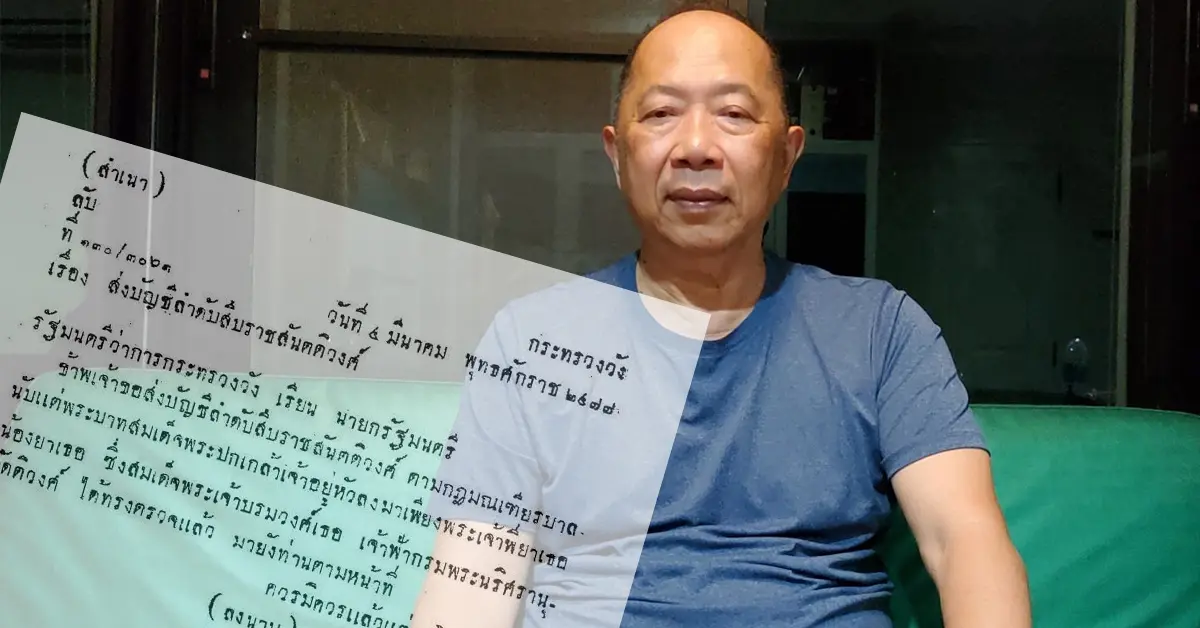 (สำเนา)
ลับ
ที่ ๑๓๐/๓๐๒๓
กระทรวงวัง
วันที่ ๔ มีนาคม พุทธศักราช ๒๔๗๗.
เรื่อง ส่งบัญชีลำดับสืบราชสันตติวงศ์
รัฐมนตรีว่าการกระทรวงวัง เรียน นายกรัฐมนตรี
ข้าพเจ้าขอส่งบัญชีลำดับสืบราชสันตติวงศ์ ตามกฎมณเฑียรบาล
นับแต่พระบาทสมเด็จพระปกเกล้าเจ้าอยู่หัวลงมาเพียงพระเจ้าพี่ยาเธอ
น้องยาเธอ ซึ่งสมเด็จพระเจ้าบรมวงศ์เธอ เจ้าฟ้ากรมพระนริศรานุ-
ดิวงศ์ ได้ทรงตรวจแล้ว มายังท่านตามหน้าที่
ควรมิควรแล้วแต่
(ลงนาม)